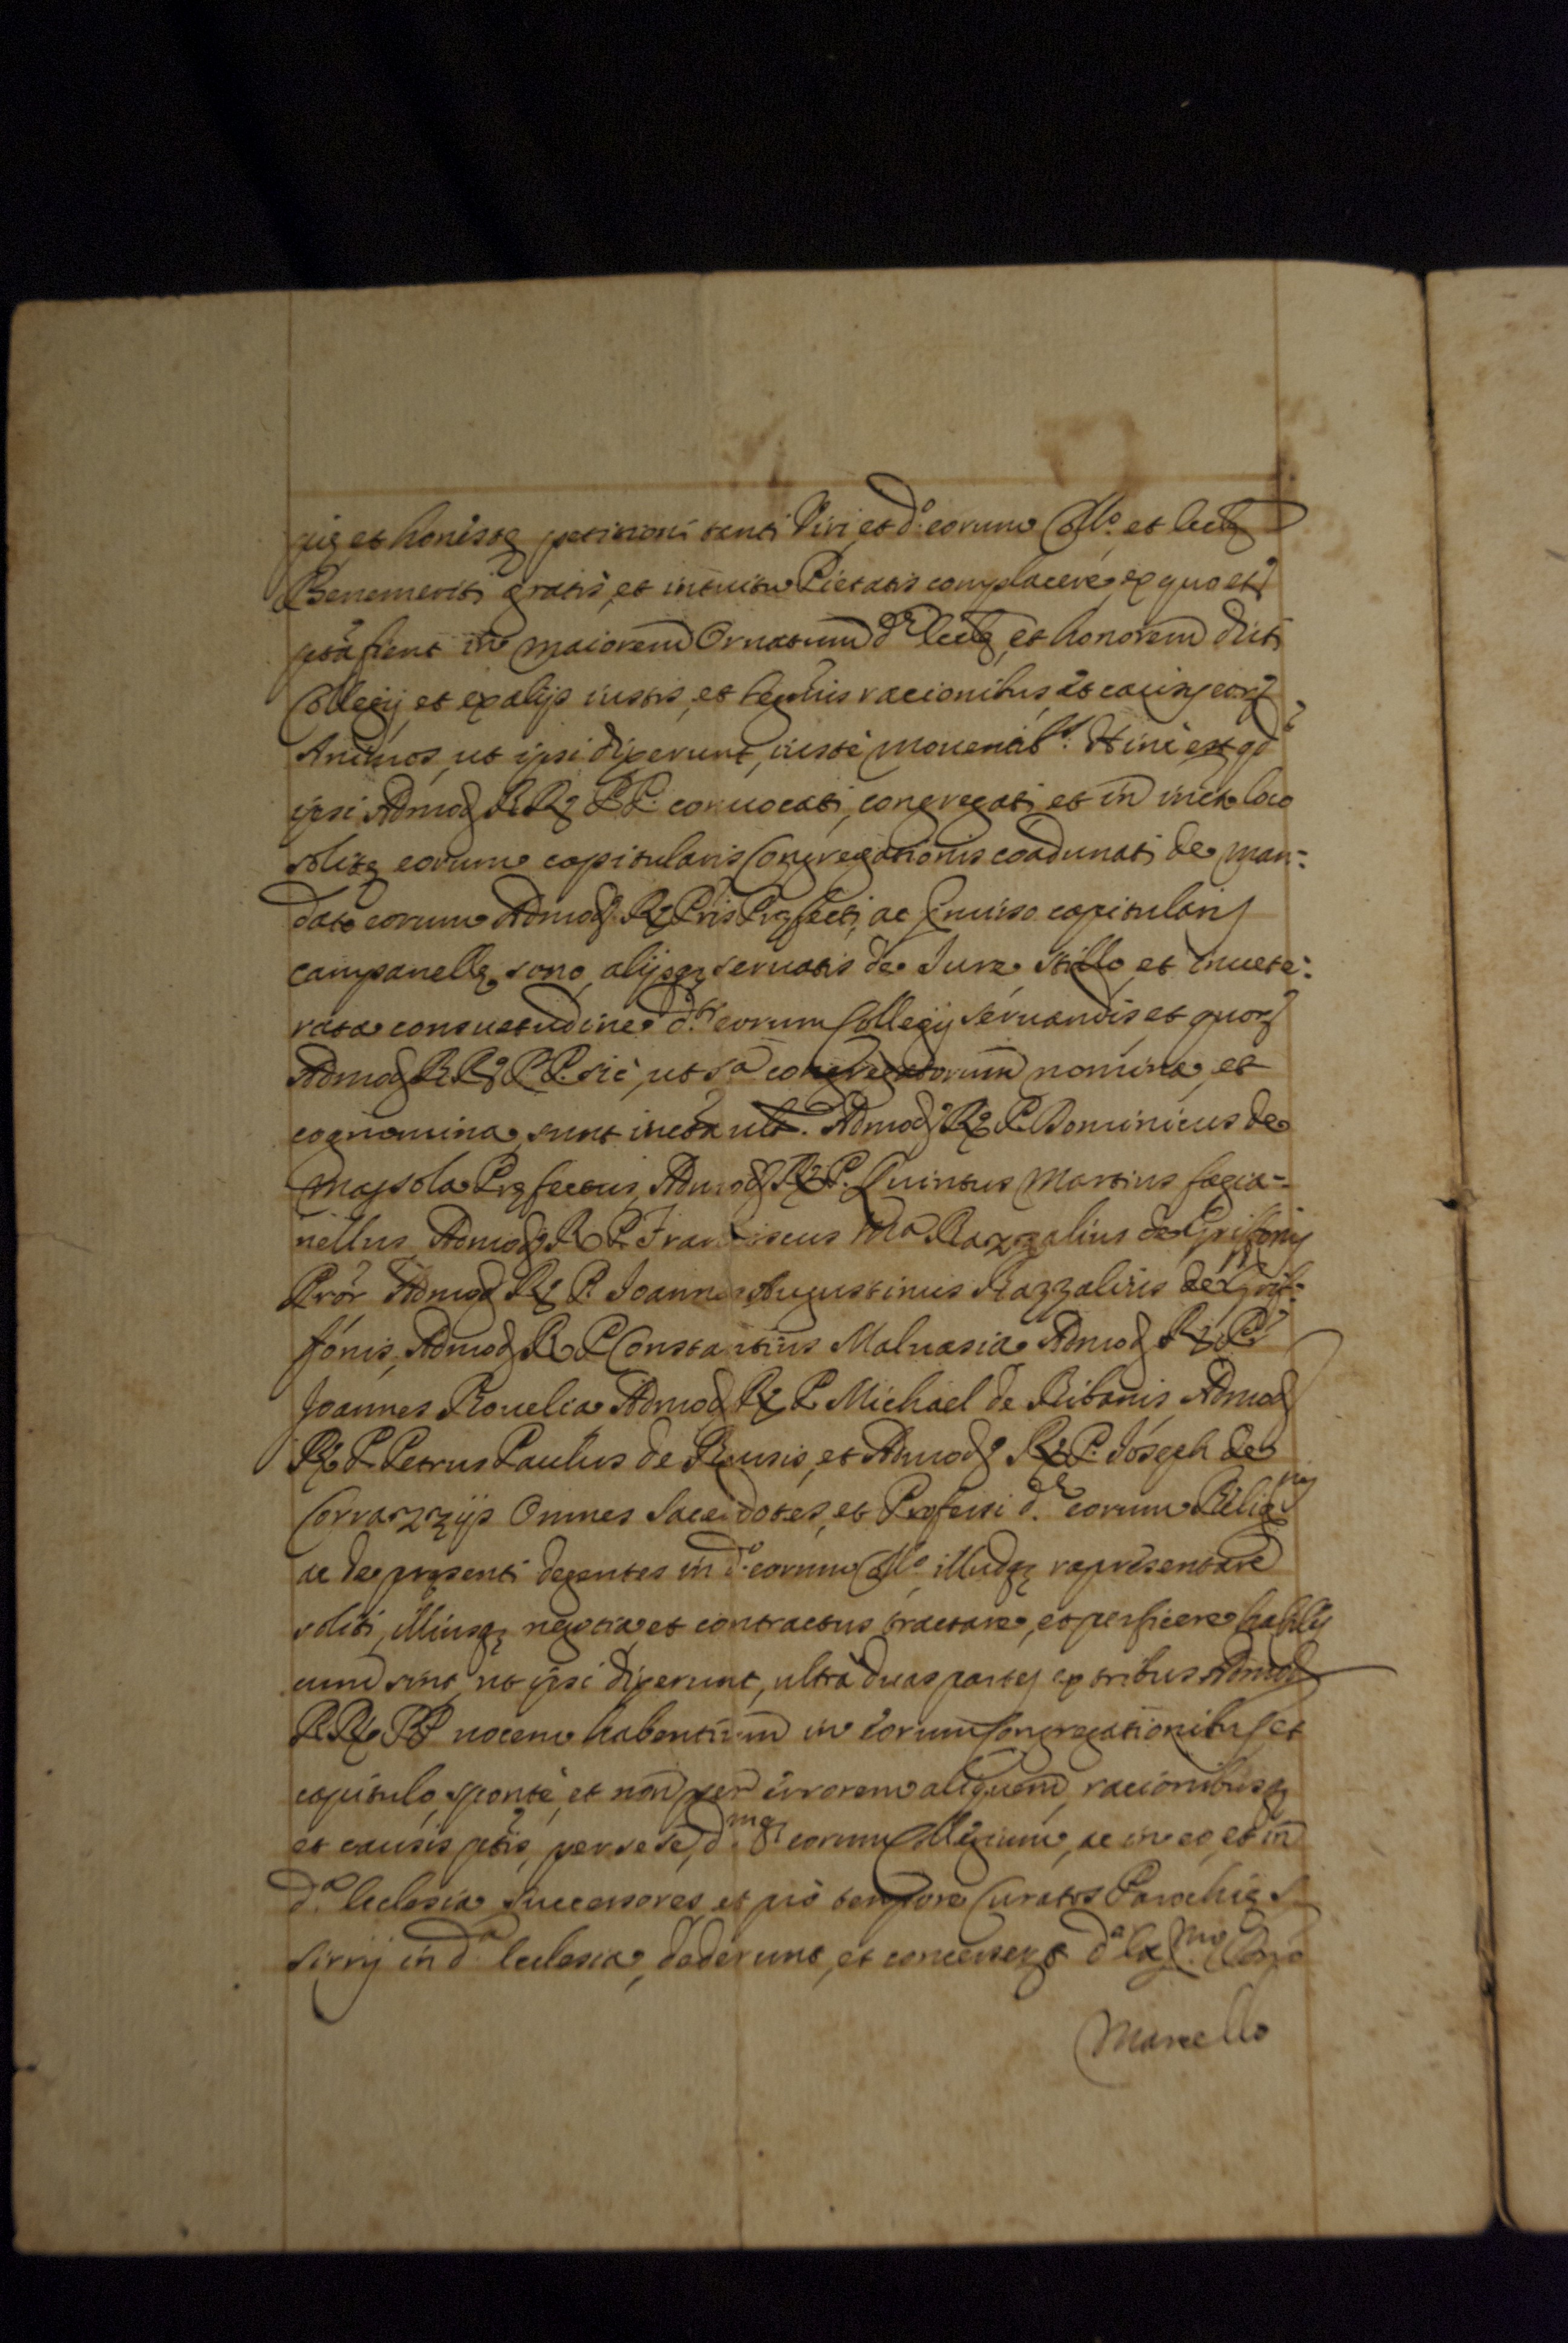 pię et honestę petitioni tanti Viri, et d.º eorum Coll.º et Eccl.ę
Benemeriti gratis, et intuitu Pietatis complacere, ex quo et
ptã fient in maiorem Ornatum d.ę Eccl.ę, et honorem dicti
Collegij et ex alijs iustis, et legmis racionibus, et causis eorũ
Animos, ut ipsi dixerunt, iustè mouenãb.s Hinc est qd
ipsi Admod. RR. PP. conuocati, congregati, et in infrã loco
solitę eorum capitularis Congregationis coadunati de man:
dato eorum Admod. R. Pris Pręfecti, ac pmisso capitularis
campanellę sono, alijsq. seruatis de Jure, stillo, et inuete:
rata consuetudine d.ti eorum Collegij seruandis, et quorũ
Admod. RR. PP. sic, ut s.ª congregatorum nomina, et
cognomina, sunt infrã ult. Admod. R. P. Dominicus de
Majsola Pręfectus, Admod. R. P. Quintus Martius fagia=
nellus, Admod. R. P. Franciscus M.ª Razzalius de Griffonis
Prõr Admod. R. P. Joannes Augustinus Razzalius de Grif:
fonis, Admod. R. P. Constantius Maluasia Admod. R. P.
Joannes Rouelia Admod. R. P. Michael de Ribanis Admod.
R. P. Petrus Paulus de Rusis, et Admod. R. P. Joseph de
Corrazzijs Omnes Sacerdotes, et Professi d.ę eorum Relig.nis
ac de pręsenti degentes in d.º eorum Coll.º, illudq. rapresentare
soliti, illiusq. negotia, et contractus tractare, et perficere habiles
cum sint, ut ipsi dixerunt, ultra duas partes ex tribus Admod.
RR. PP. uocem habentium in eorum Congregationibus, et
capitulo, sponte, et non per errorem aliquem, racionibusq.
et causis ptis, per se se, d.m eorum Collegium, ac in eo, et in
d.ª Ecclesia Successores, et pro tempore Curatos Parochię S.
Sirri in d.ª Ecclesia, dederunt, et concesserũt d.º Ex.mo Dno
Marcello